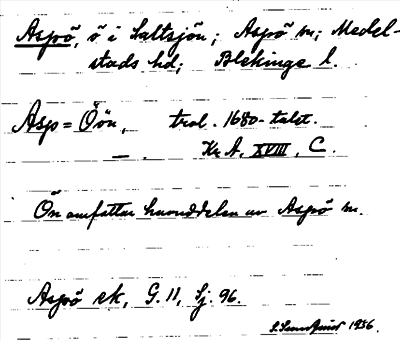 Aspö, ö i Saltsjön; Aspö sn; Medel-
stads hd; Blekinge l.
Asp=Öön, trol. 1680-talet.
Kr A, XVIII, C.
Ön omfattar huvuddelen av Aspö sn.
Aspö sk, G. 11, Sj. 96.
1956.